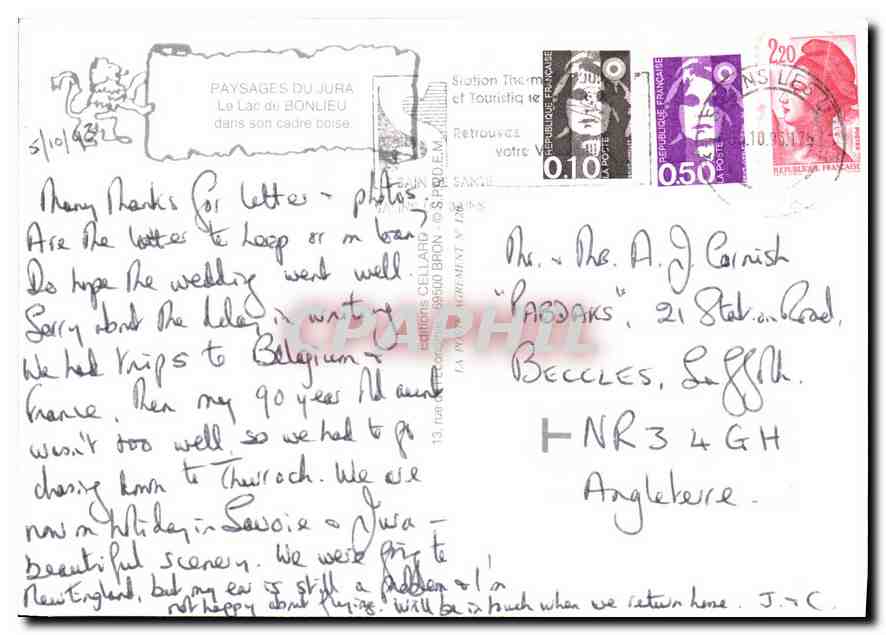 PAYSAGES DU JURA
Le Lac de BONLIEU
dans son cadre boisé.
5/10/93
Many thanks for letter + photos.
Are the latter to keep or on loan?
Do hope the wedding went well.
Sorry about the delay in writing
We had trips to Belgium +
France, then my 90 year old aunt
wasn't too well, so we had to go
chasing down to Thurrock. We are
now on holiday in Savoie + Jura –
beautiful scenery. We were going to
New England, but my ear is still a problem + I'm
not happy about flying. Will be in touch when we return home. J. + C.
editions CELLARD
13, rue de l'Economique 69500 BRON - © S.P.A.D.E.M.
LA POSTE AGREMENT N°
Station Thermale
et Touristique
Retrouvez
votre
BAIN SANTE
REPUBLIQUE FRANÇAISE
0,10
LA POSTE
REPUBLIQUE FRANÇAISE
0,50
LA POSTE
2,20
POSTES
REPUBLIQUE FRANÇAISE
Mr. + Mrs. A. J. Cornish
"PABJAKS", 21 Station Road,
BECCLES, Suffolk.
T NR3 4GH
Angleterre.
CPAPHIL